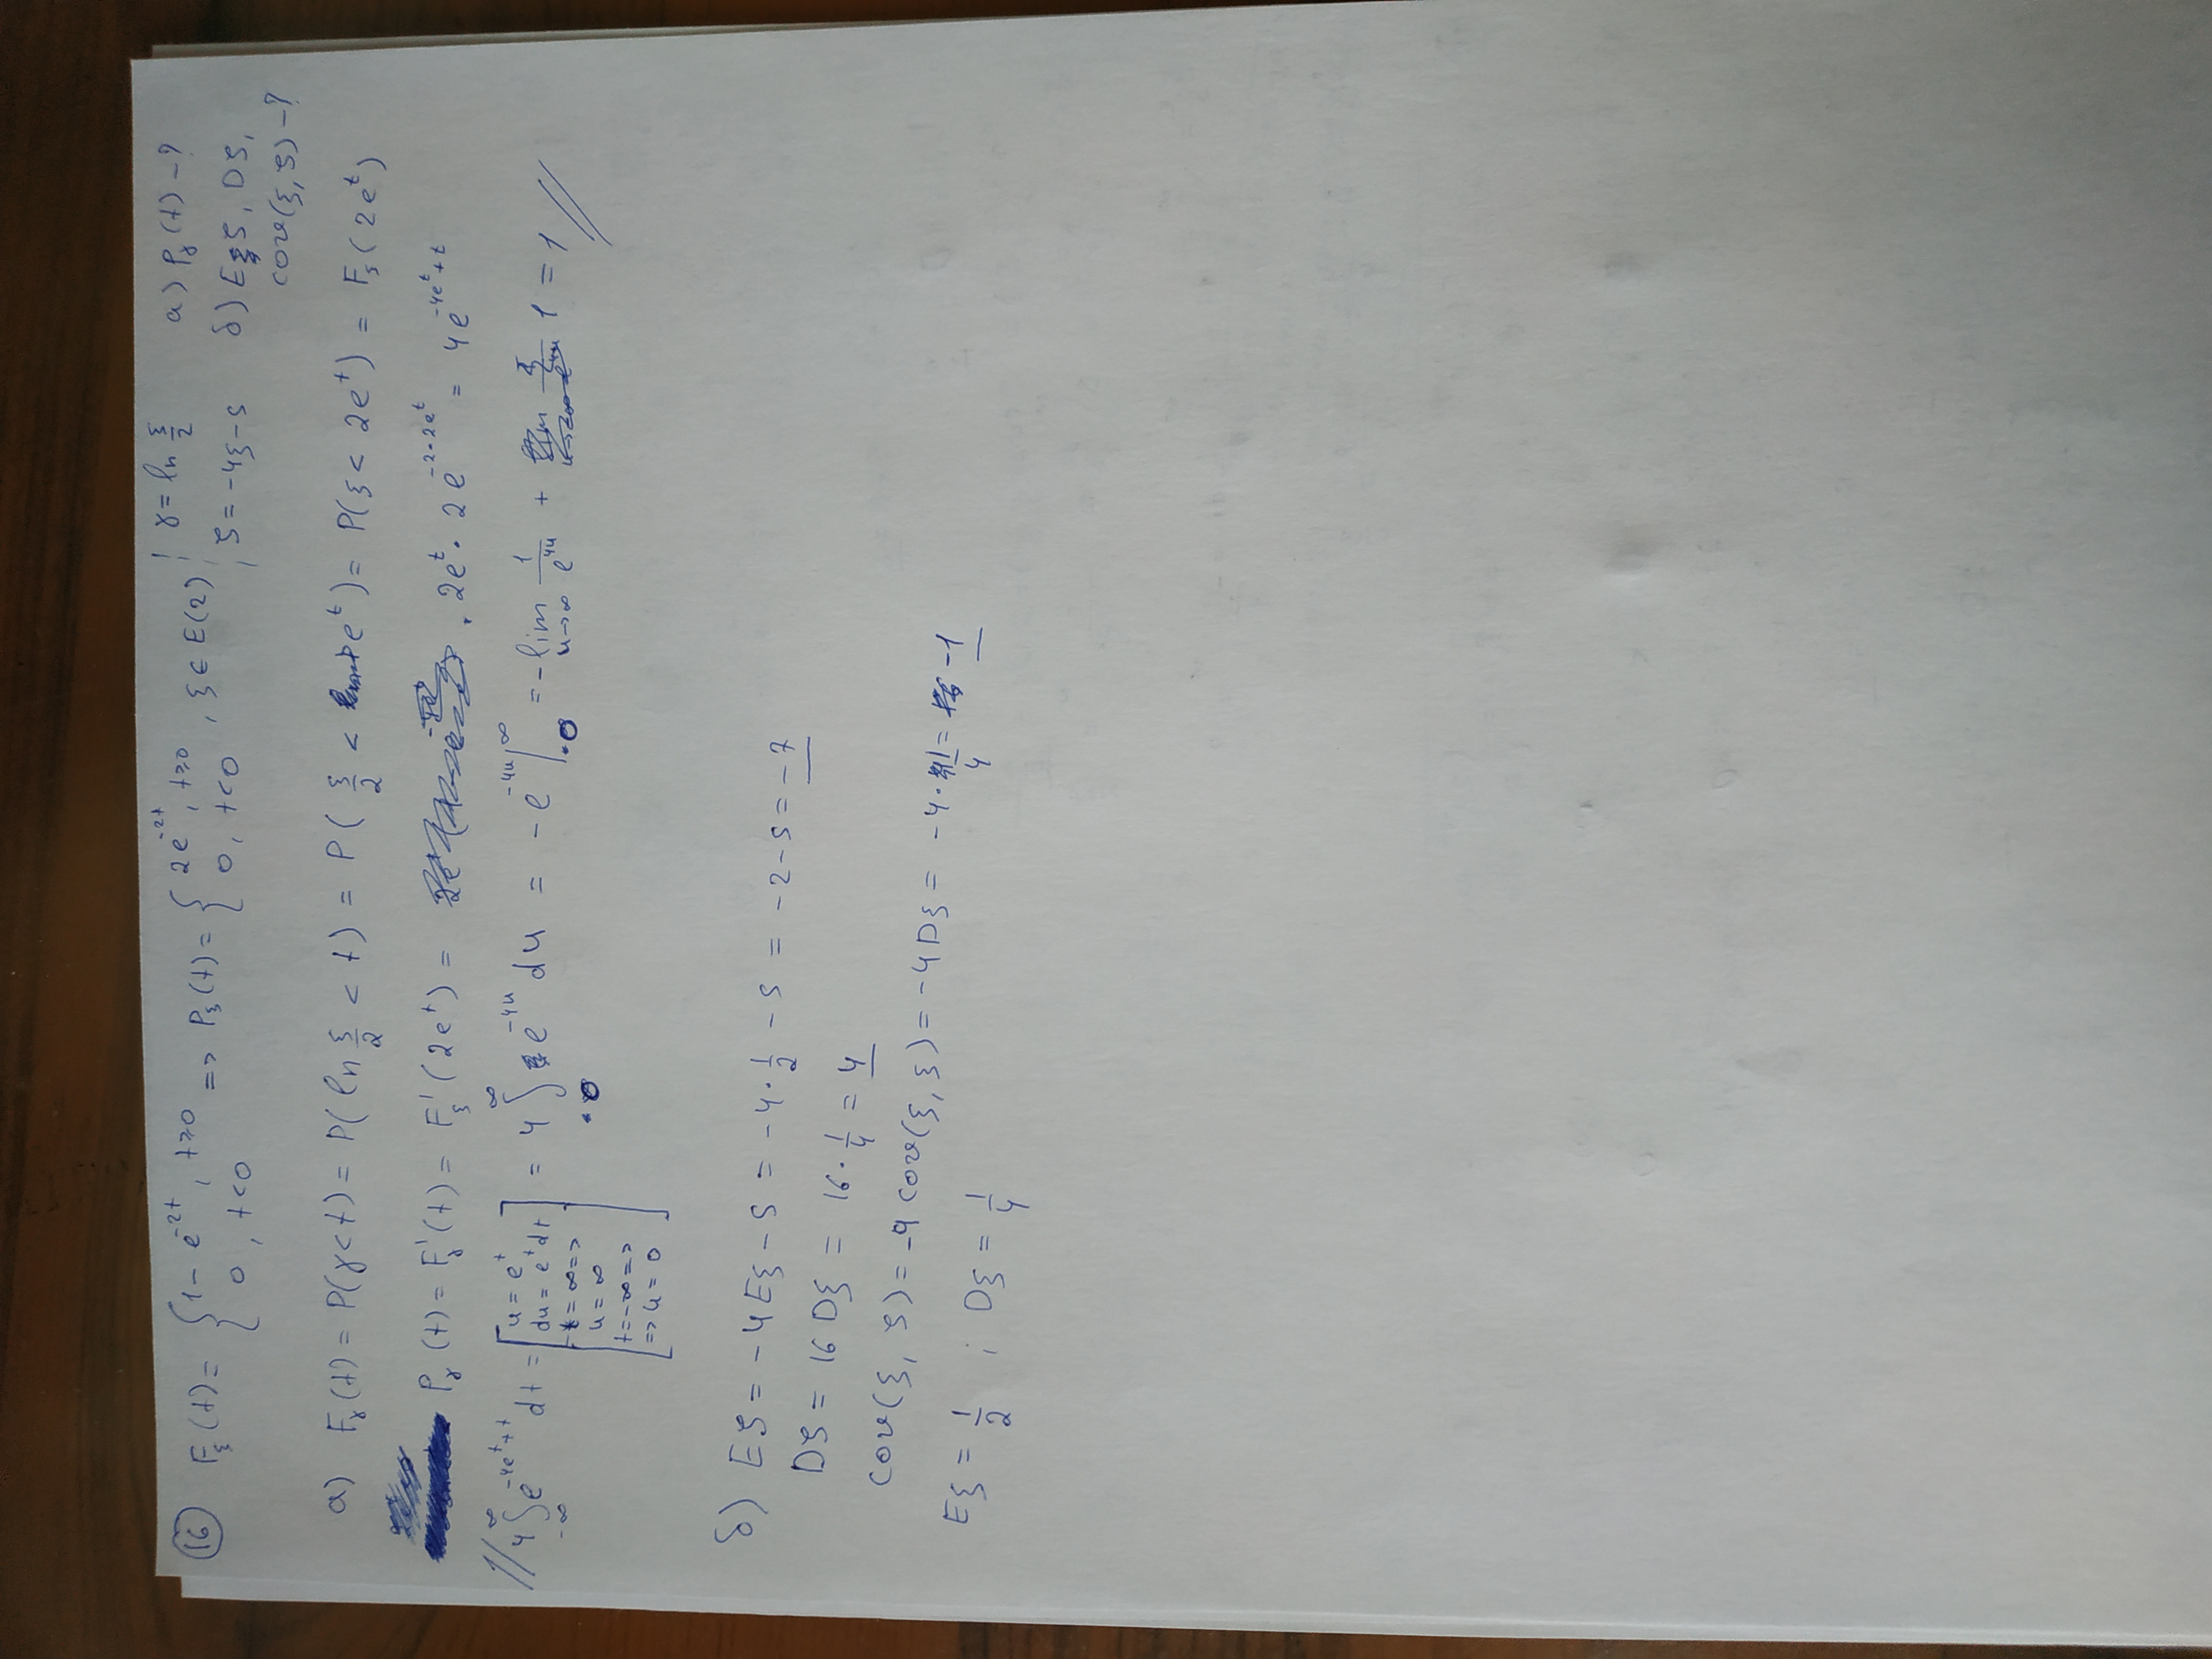 16 F_ξ(t) = { 1 - e^{-2t}, t≥0 ; 0, t<0 => P_ξ(t) = { 2e^{-2t}, t≥0 ; 0, t<0 , ξ ∈ E(2) ; γ = ln ξ/2 ; ζ = -4ξ-5
а) P_γ(t) -?
б) Eζ, Dζ,
cov(ξ, ζ) -?
а) F_γ(t) = P(γ<t) = P(ln ξ/2 < t) = P(ξ/2 < e^t) = P(ξ < 2e^t) = F_ξ(2e^t)
P_γ(t) = F_γ'(t) = F_ξ'(2e^t) = · 2e^t · 2e^{-2·2e^t} = 4e^{-4e^t+t}
// 4 ∫_{-∞}^{∞} e^{-4e^t+t} dt = [ u = e^t
du = e^t dt
t = ∞ =>
u = ∞
t = -∞ =>
=> u = 0 ] = 4 ∫_0^∞ e^{-4u} du = -e^{-4u} |_0^∞ = - lim_{u→∞} 1/e^{4u} + 1 = 1 //
б) Eζ = -4Eξ - 5 = -4 · 1/2 - 5 = -2-5 = -7
Dζ = 16 Dξ = 16 · 1/4 = 4
cov(ξ, ζ) = -4 cov(ξ, ξ) = -4Dξ = -4 · 1/4 = -1
Eξ = 1/2 ; Dξ = 1/4